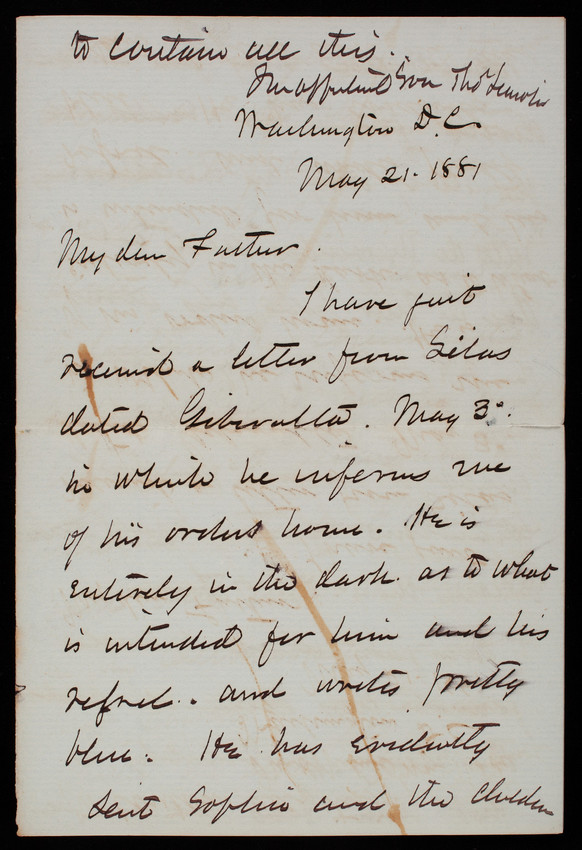 to contain all this.
Your Thos
Washington D.C.
May 21. 1881
My dear Father.
I have just
received a letter from Silas
dated Gibralta. May 3d.
in which he informs me
of his orders home. He is
entirely in the dark. as to what
is intended for him and his
and writes pretty
blue. He has evidently
sent Sophie and the children